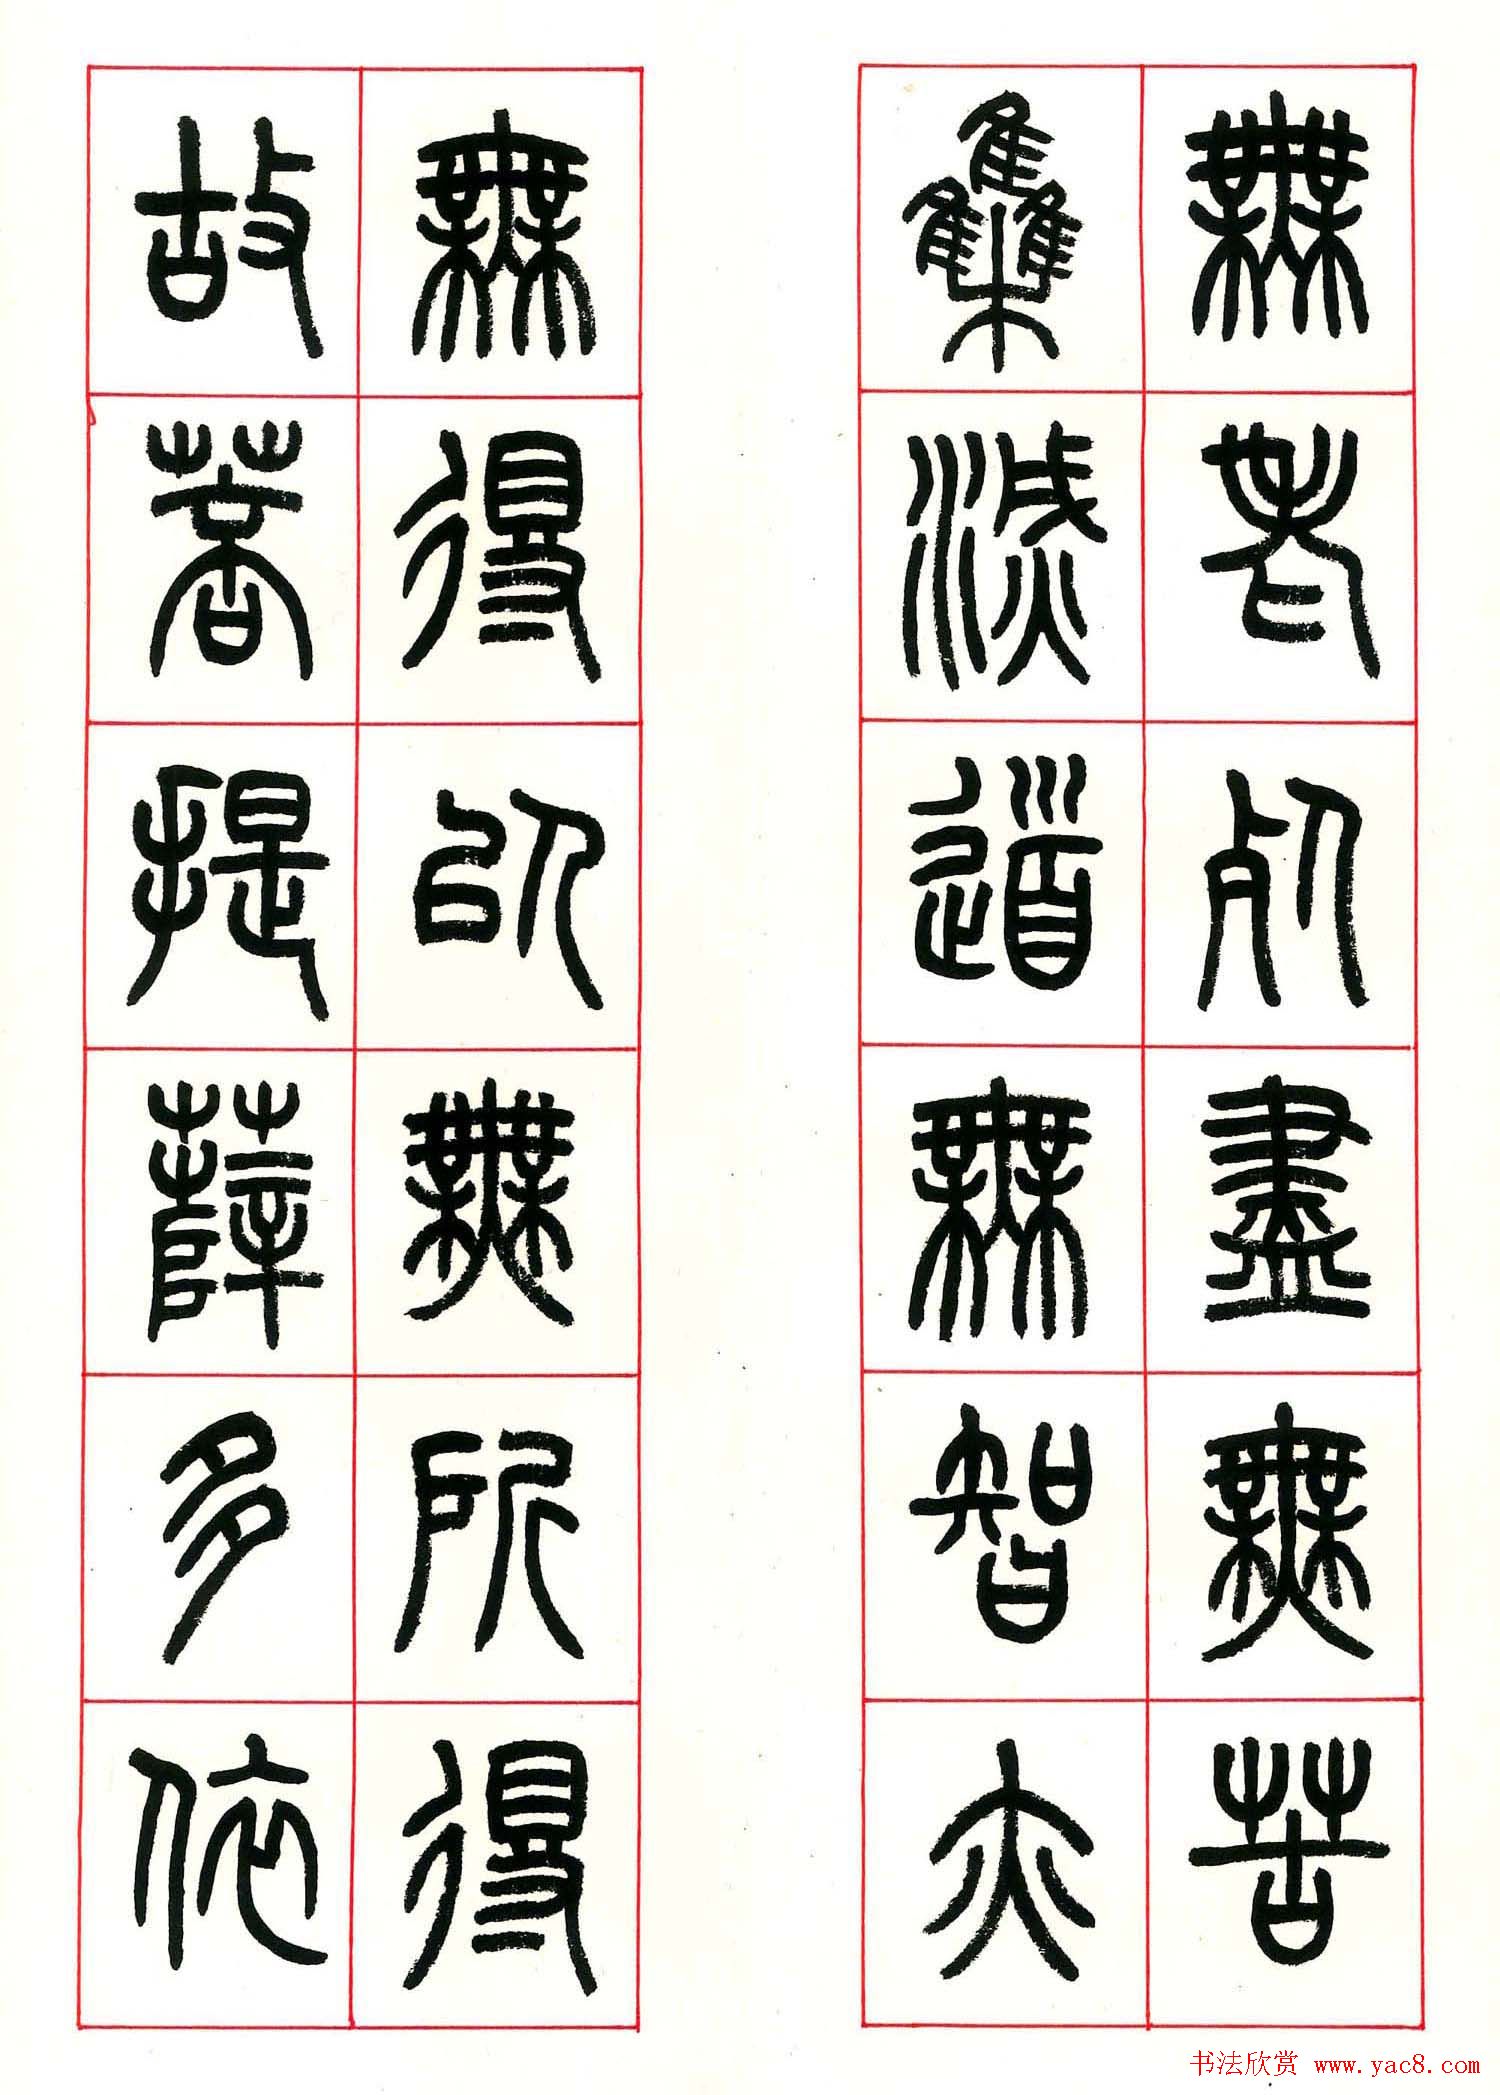 無老死盡無苦
集滅道無智亦
無得以無所得
故菩提薛多依
书法欣赏 www.yac8.com